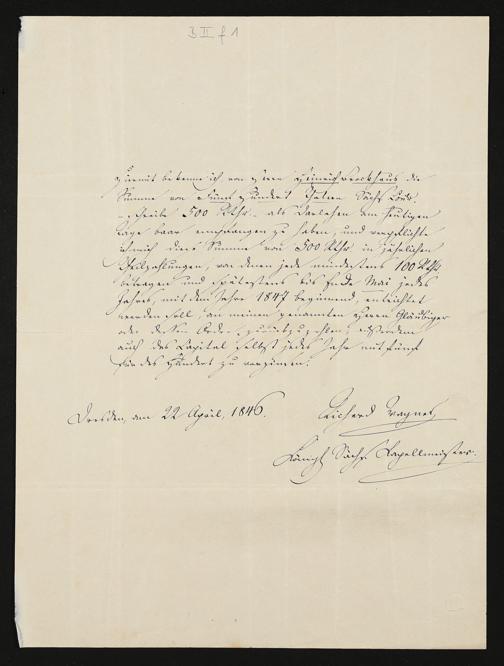 B II f 1
Hiermit bekenne ich von Herrn Heinrich Brockhaus die
Summe von Fünf Hundert Thalern Sächs. Cour.
– schreibe 500 Rthr – als Darlehen am heutigen
Tage baar empfangen zu haben, und verpflichte
mich diese Summe von 500 Rthr in jährlichen
Theilzahlungen, von denen jede mindestens 100 Rthr
betragen und spätestens bis Ende Mai jedes
Jahres, mit dem Jahre 1847 beginnend, entrichtet
werden soll, an meinen genannten Herrn Gläubiger
oder dessen Ordre zurückzuzahlen, außerdem
auch das Capital selbst jedes Jahr mit fünf
für das Hundert zu verzinsen.
Dresden, am 22 April, 1846.
Richard Wagner
Königl. Sächs. Capellmeister.